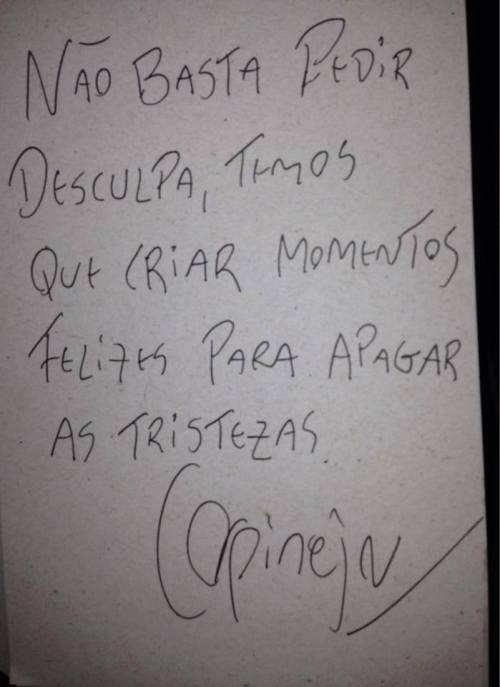 NÃO BASTA PEDIR
DESCULPA, TEMOS
QUE CRIAR MOMENTOS
FELIZES PARA APAGAR
AS TRISTEZAS.
Carpinejar